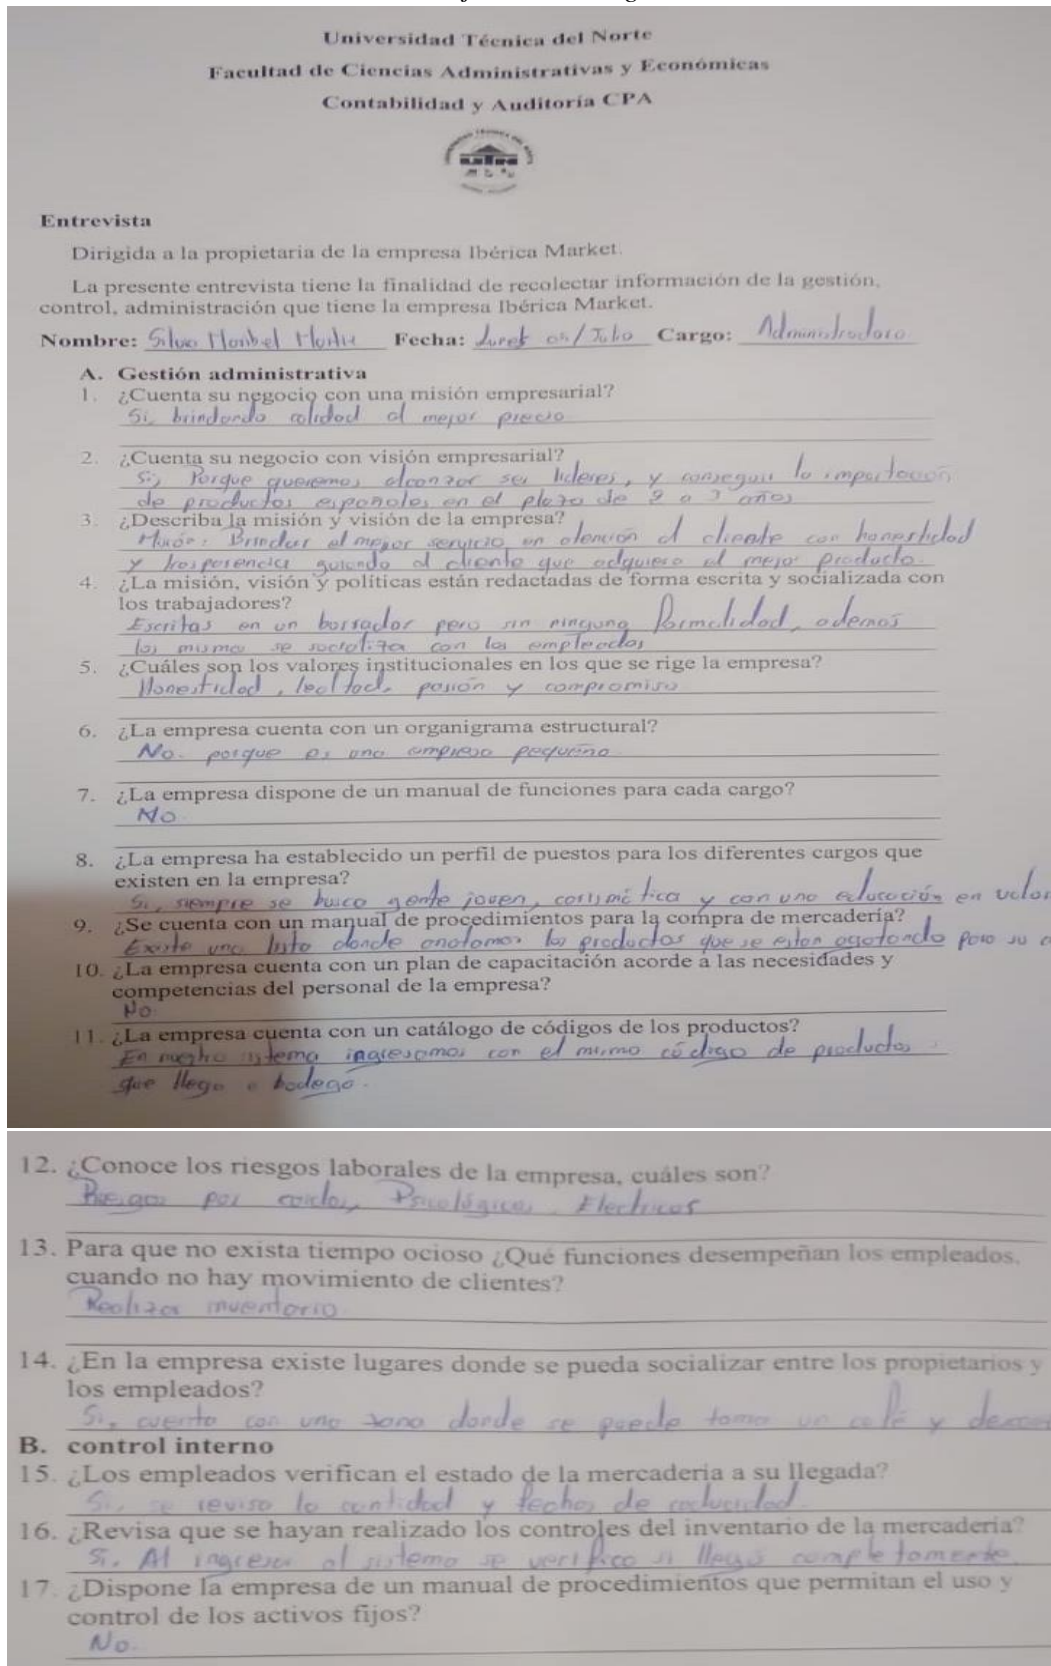 Universidad Técnica del Norte
Facultad de Ciencias Administrativas y Económicas
Contabilidad y Auditoría CPA
UTN
Entrevista
Dirigida a la propietaria de la empresa Ibérica Market.
La presente entrevista tiene la finalidad de recolectar información de la gestión,
control, administración que tiene la empresa Ibérica Market.
Nombre: Silva Maribel Fecha: Lunes 05/Julio Cargo: Administradora
A. Gestión administrativa
1. ¿Cuenta su negocio con una misión empresarial?
Si, brindando calidad al mejor precio
2. ¿Cuenta su negocio con visión empresarial?
Si, Porque queremos alcanzar ser lideres, y conseguir la importación
de productos españoles en el plazo de 2 a 3 años
3. ¿Describa la misión y visión de la empresa?
Misión: Brindar el mejor servicio en atención al cliente con honestidad
y trasparencia guiando al cliente que adquiera el mejor producto.
4. ¿La misión, visión y políticas están redactadas de forma escrita y socializada con
los trabajadores?
Escritas en un borrador pero sin ninguna formalidad, ademas
las mismas se socializa con los empleados
5. ¿Cuáles son los valores institucionales en los que se rige la empresa?
Honestidad, lealtad, pasión y compromiso
6. ¿La empresa cuenta con un organigrama estructural?
No. porque es una empresa pequeña
7. ¿La empresa dispone de un manual de funciones para cada cargo?
No.
8. ¿La empresa ha establecido un perfil de puestos para los diferentes cargos que
existen en la empresa?
Si, siempre se busca gente joven, carismática y con una educación en valor
9. ¿Se cuenta con un manual de procedimientos para la compra de mercadería?
Existe una lista donde anotamos los productos que se estan agotando para su c
10. ¿La empresa cuenta con un plan de capacitación acorde a las necesidades y
competencias del personal de la empresa?
No
11. ¿La empresa cuenta con un catálogo de códigos de los productos?
En nuestro sistema ingresamos con el mismo código de productos
que llega a bodega.
12. ¿Conoce los riesgos laborales de la empresa, cuáles son?
Riesgos por caidas, Psicológicos, Electricos
13. Para que no exista tiempo ocioso ¿Qué funciones desempeñan los empleados,
cuando no hay movimiento de clientes?
Realizar inventario
14. ¿En la empresa existe lugares donde se pueda socializar entre los propietarios y
los empleados?
Si, cuenta con una zona donde se puede tomar un café y
B. control interno
15. ¿Los empleados verifican el estado de la mercadería a su llegada?
Si, se revisa la cantidad y fechas de caducidad.
16. ¿Revisa que se hayan realizado los controles del inventario de la mercadería?
Si. Al ingresar al sistema se verifica si llegó completamente.
17. ¿Dispone la empresa de un manual de procedimientos que permitan el uso y
control de los activos fijos?
No.